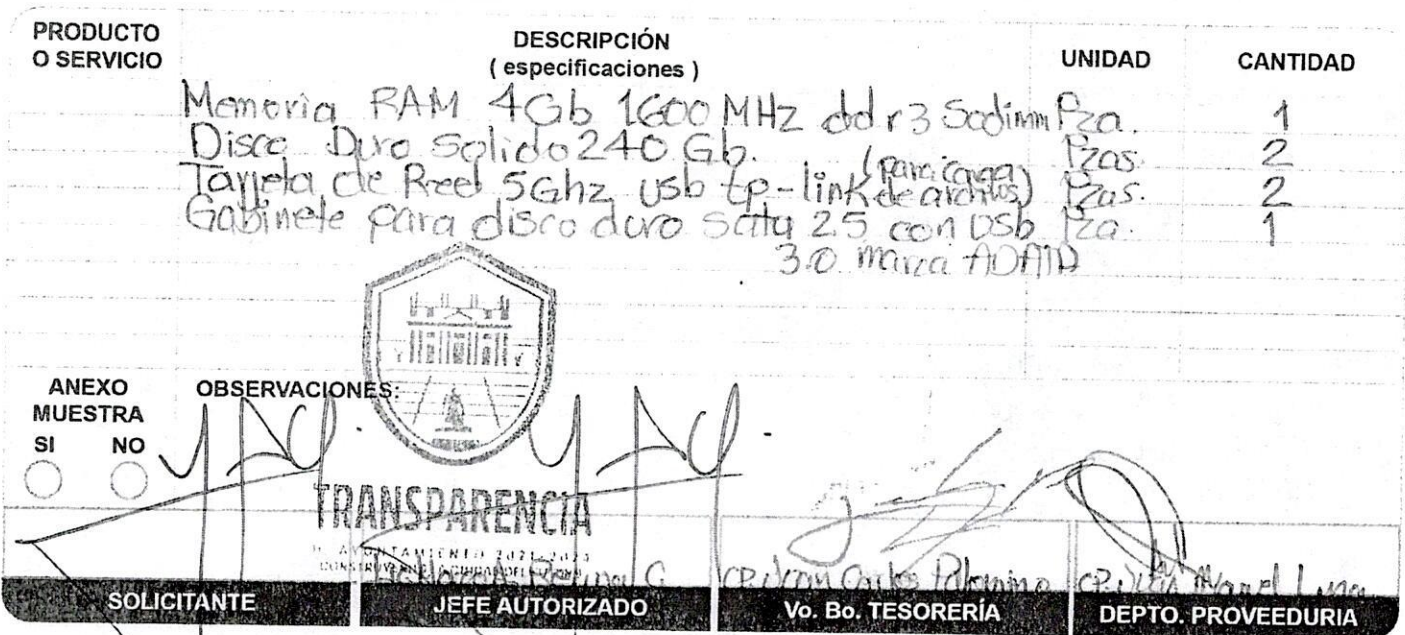 PRODUCTO O SERVICIO
DESCRIPCIÓN
( especificaciones )
UNIDAD
CANTIDAD
Memoria RAM 4Gb 1600 MHz ddr3 Sodimm Pza. 1
Disco Duro Solido 240 Gb. Pzas. 2
(para carga de archivos)
Tarjeta de Reed 5Ghz usb tp-link Pzas. 2
Gabinete para disco duro sata 2.5 con usb Pza. 1
3.0 marca ADATA
ANEXO MUESTRA
SI NO
OBSERVACIONES:
TRANSPARENCIA
H. AYUNTAMIENTO 2021-2024
C.P. Juan Carlos Palomino
C.P. Juan Manuel Luna
SOLICITANTE
JEFE AUTORIZADO
Vo. Bo. TESORERÍA
DEPTO. PROVEEDURIA